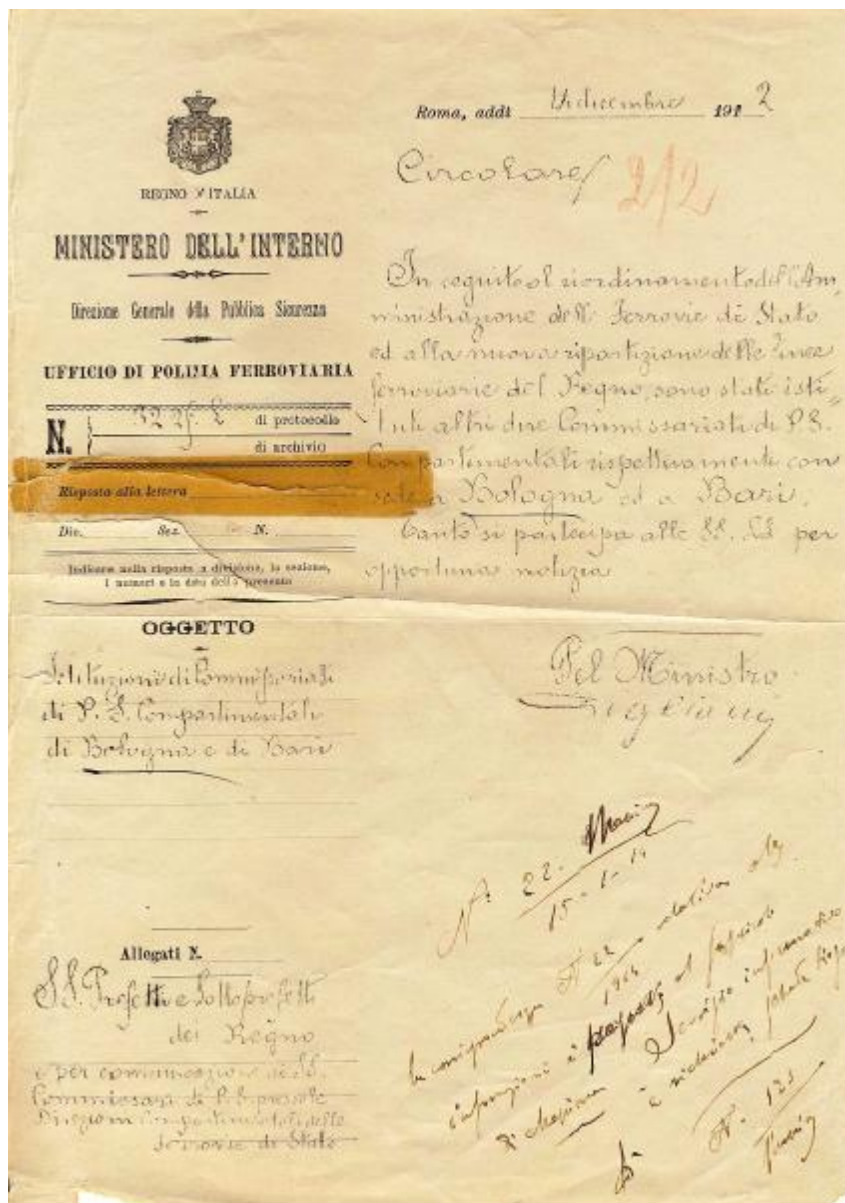 REGNO D'ITALIA
MINISTERO DELL'INTERNO
Direzione Generale della Pubblica Sicurezza
UFFICIO DI POLIZIA FERROVIARIA
N.
di protocollo
di archivio
Risposta alla lettera
Div. Sez. N.
Indicare nella risposta a divisione, la sezione,
i numeri e la data della presente
OGGETTO
Istituzioni di Commissariati
di P. S. Compartimentali
di Bologna e di Bari
Allegati N.
SS. Prefetti e Sottoprefetti
del Regno
e per comunicazione ai SS.
Commissari di P.S. presso le
Direzioni Compartimentali delle
Ferrovie di Stato
Roma, addì dicembre 1912
Circolare
2/2
In seguito al riordinamento dell'Am-
ministrazione delle Ferrovie di Stato
ed alla nuova ripartizione delle linee
ferroviarie del Regno, sono stati isti-
tuiti altri due Commissariati di P.S.
Compartimentali rispettivamente con
sede a Bologna ed a Bari.
Tanto si partecipa alle SS. LL. per
opportuna notizia
Pel Ministro
N. 22-
15-1-14
N 22 relativa
1914
N. 123